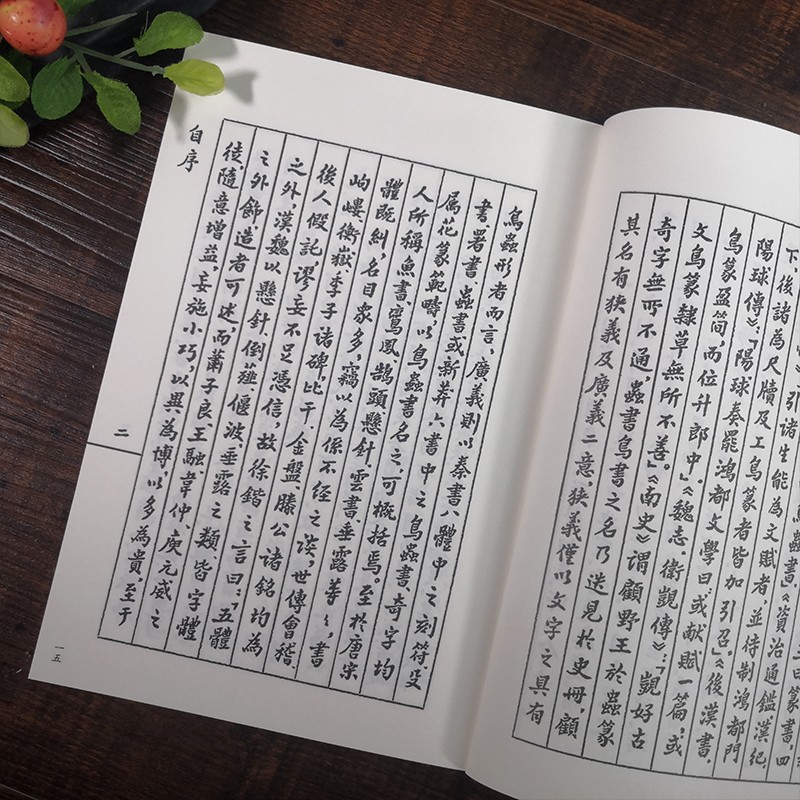 三曰篆書,四
蟲書。《資治通鑑·漢紀
》引諸生能為文賦者,並待制鴻都門
下,後諸為尺牘及工鳥篆者皆加引召。《後漢書·
陽球傳》:「陽球奏罷鴻都文學曰:或献賦一篇,或
鳥篆盈簡,而位升郎中。」《魏志·衛覬傳》:「覬好古
文鳥篆隸草無所不善。」《南史》謂顧野王於蟲篆
奇字無所不通,蟲書鳥書之名乃迭見於史冊,顧
其名有狹義及廣義二意,狹義僅以文字之具有
鳥蟲形者而言,廣義則以秦書八體中之刻符、殳
書、署書、蟲書或新莽六書中之鳥蟲書、奇字均
屬花篆範疇,以鳥蟲書名之,可概括焉。至於唐宋
人所稱魚書、鸞鳳、鵠頭、懸針、雲書、垂露等等,書
體既糾,名目眾多,竊以為係不經之談,世傳會稽、
岣嶁、衡嶽、季子諸碑,比干、金盤、滕公諸銘均為
後人假託,謬妄不足憑信,故徐鍇之言曰:「五體
之外,漢魏以懸針、倒薤、偃波、垂露之類,皆字體
之外飾,造者可述,而蕭子良、王融、韋仲、庾元威之
徒,隨意增益,妄施小巧,以異為博,以多為貴,至于
自序
二
一五